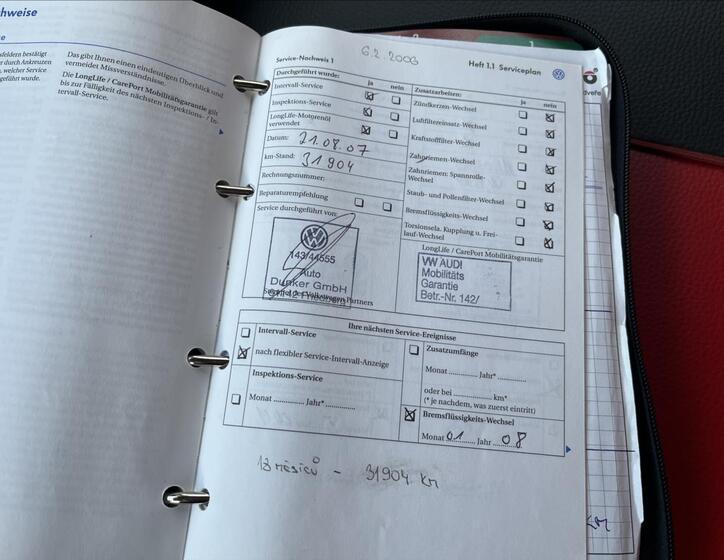 hweise
e
sfeldern bestätigt
r durch Ankreuzen
, welcher Service
geführt wurde.
Das gibt Ihnen einen eindeutigen Überblick und
vermeidet Missverständnisse.
Die LongLife / CarePort Mobilitätsgarantie gilt
bis zur Fälligkeit des nächsten Inspektions- / In-
tervall-Service.
6.2.2006
Service-Nachweis 1
Heft 1.1 Serviceplan
Durchgeführt wurde: ja nein
Intervall-Service
Inspektions-Service
LongLife-Motorenöl
verwendet
Datum: 21.08.07
km-Stand: 31904
Rechnungsnummer:
Reparaturempfehlung
Service durchgeführt von:
143/44555
Auto
Dunker GmbH
Stempel des Volkswagen Partners
Zusatzarbeiten: ja nein
Zündkerzen-Wechsel
Luftfiltereinsatz-Wechsel
Kraftstofffilter-Wechsel
Zahnriemen-Wechsel
Zahnriemen: Spannrolle-
Wechsel
Staub- und Pollenfilter-Wechsel
Bremsflüssigkeits-Wechsel
Torsionsela. Kupplung u. Frei-
lauf-Wechsel
LongLife / CarePort Mobilitätsgarantie
VW AUDI
Mobilitäts
Garantie
Betr.-Nr. 142/
Ihre nächsten Service-Ereignisse
Intervall-Service
nach flexibler Service-Intervall-Anzeige
Inspektions-Service
Monat ............ Jahr* ............
Zusatzumfänge
Monat ............ Jahr* ............
oder bei ............ km*
(* je nachdem, was zuerst eintritt)
Bremsflüssigkeits-Wechsel
Monat 01 Jahr 08
18 měsíců - 31904 km